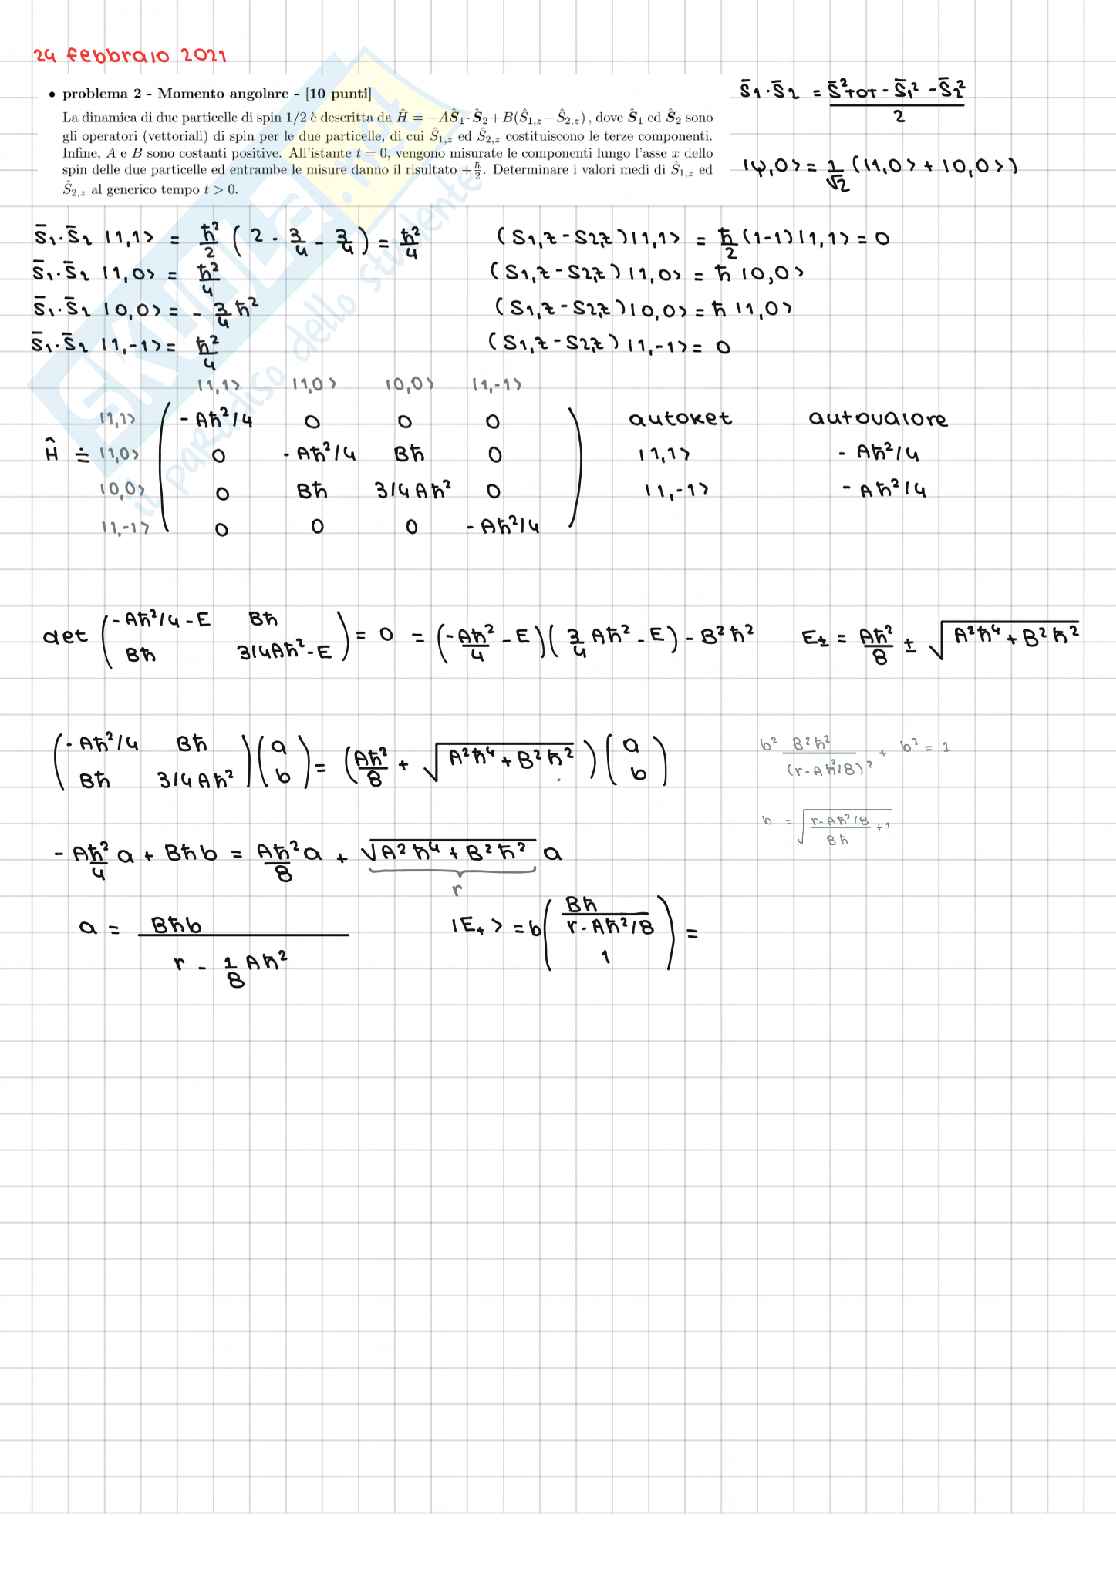 24 febbraio 2021
• problema 2 - Momento angolare - [10 punti]
La dinamica di due particelle di spin 1/2 è descritta da Ĥ = −AŜ₁·Ŝ₂ + B(Ŝ₁,z − Ŝ₂,z), dove Ŝ₁ ed Ŝ₂ sono
gli operatori (vettoriali) di spin per le due particelle, di cui Ŝ₁,z ed Ŝ₂,z costituiscono le terze componenti.
Infine, A e B sono costanti positive. All'istante t = 0, vengono misurate le componenti lungo l'asse x dello
spin delle due particelle ed entrambe le misure danno il risultato +ħ/2. Determinare i valori medi di Ŝ₁,z ed
Ŝ₂,z al generico tempo t > 0.
S̄₁·S̄₂ = (S̄²TOT - S̄₁² - S̄₂²)/2
|ψ,0> = 1/√2 (|1,0> + |0,0>)
S̄₁·S̄₂ |1,1> = ħ²/2 (2 - 3/4 - 3/4) = ħ²/4 (S1,z - S2,z)|1,1> = ħ/2 (1-1)|1,1> = 0
S̄₁·S̄₂ |1,0> = ħ²/4 (S1,z - S2,z)|1,0> = ħ |0,0>
S̄₁·S̄₂ |0,0> = - 3/4 ħ² (S1,z - S2,z)|0,0> = ħ |1,0>
S̄₁·S̄₂ |1,-1> = ħ²/4 (S1,z - S2,z)|1,-1> = 0
|1,1> |1,0> |0,0> |1,-1>
|1,1> - Aħ²/4 0 0 0 autoket autovalore
Ĥ ≐ |1,0> 0 - Aħ²/4 Bħ 0 |1,1> - Aħ²/4
|0,0> 0 Bħ 3/4 Aħ² 0 |1,-1> - Aħ²/4
|1,-1> 0 0 0 - Aħ²/4
det (-Aħ²/4 - E Bħ
Bħ 3/4Aħ² - E) = 0 = (-Aħ²/4 - E)(3/4 Aħ² - E) - B²ħ² E± = Aħ²/8 ± √(A²ħ⁴ + B²ħ²)
(-Aħ²/4 Bħ
Bħ 3/4 Aħ²)(a b) = (Aħ²/8 + √(A²ħ⁴ + B²ħ²))(a b)
b² B²ħ²/(r - Aħ²/8)² + b² = 1
b = √((r - Aħ²/8)/Bħ + 1)
- Aħ²/4 a + Bħb = Aħ²/8 a + √(A²ħ⁴ + B²ħ²) a
r
a = Bħb/(r - 1/8 Aħ²) |E+> = b (Bħ/(r - Aħ²/8) 1) =